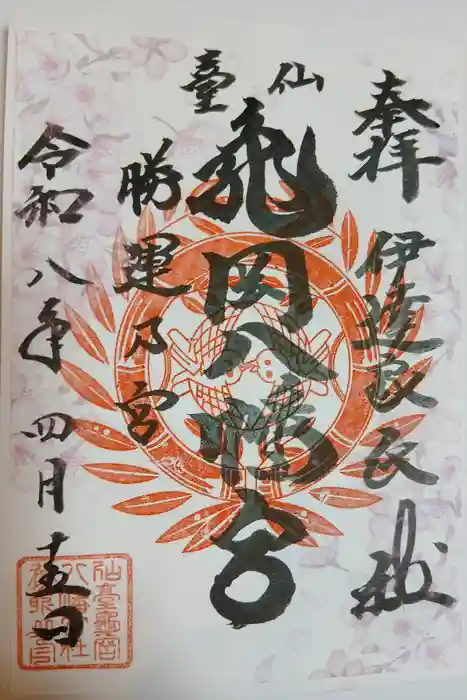 奉拝
伊達家氏神
仙臺
亀岡八幡宮
勝運乃宮
令和八年四月十五日
仙臺龜岡
八幡宮社
務所之印